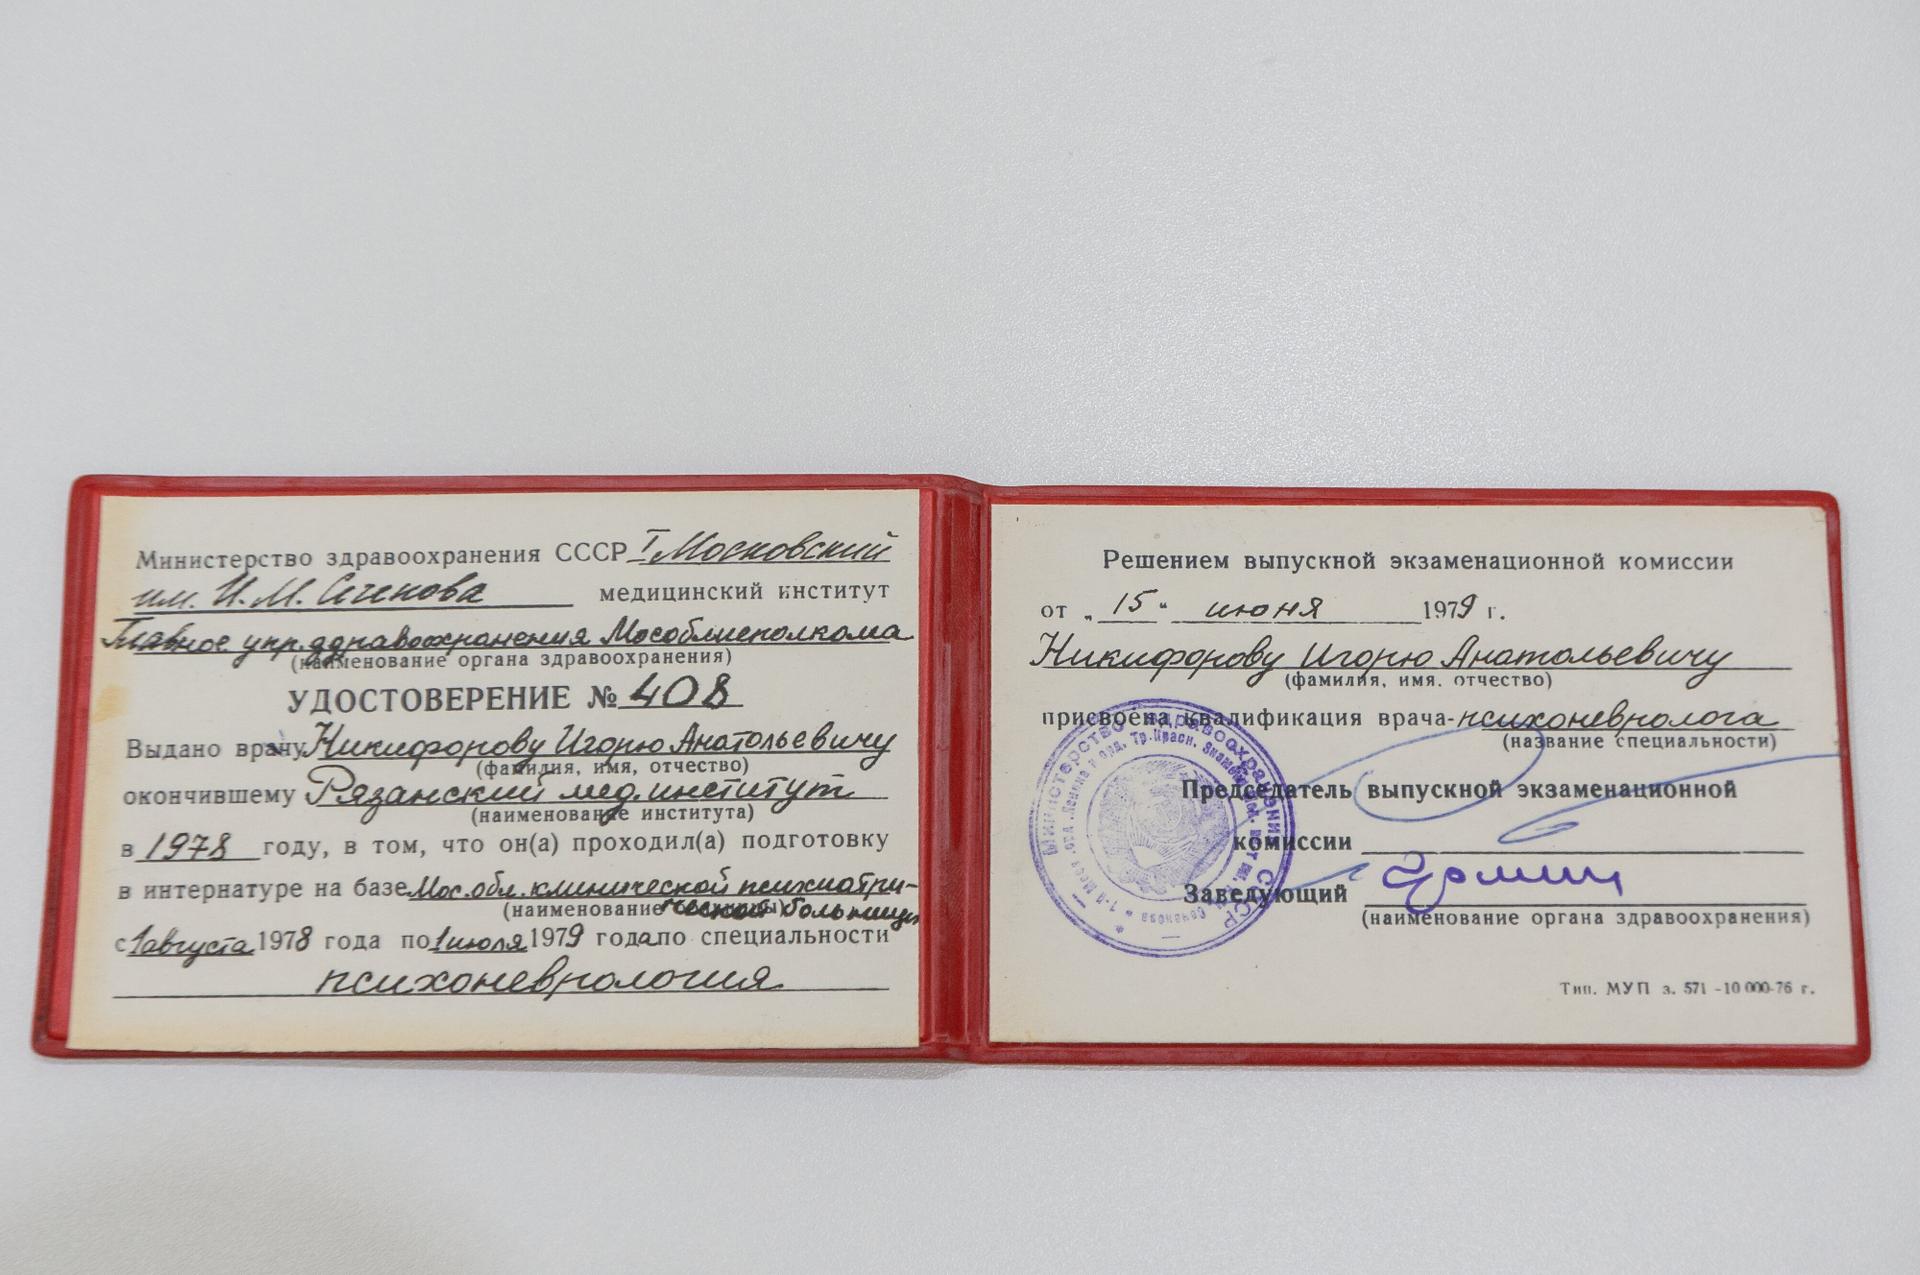 Министерство здравоохранения СССР I Московский
им. И. М. Сеченова медицинский институт
Главное упр. здравоохранения Мособлисполкома
(наименование органа здравоохранения)
УДОСТОВЕРЕНИЕ № 408
Выдано врачу Никифорову Игорю Анатольевичу
(фамилия, имя, отчество)
окончившему Рязанский мед. институт
(наименование института)
в 1978 году, в том, что он(а) проходил(а) подготовку
в интернатуре на базе Мос. обл. клинической психиатри-
(наименование ческой больницы
с 1 августа 1978 года по 1 июля 1979 года по специальности
психоневрология
Решением выпускной экзаменационной комиссии
от „15“ июня 1979 г.
Никифорову Игорю Анатольевичу
(фамилия, имя, отчество)
присвоена квалификация врача-психоневролога
(название специальности)
Председатель выпускной экзаменационной
комиссии
Заведующий
(наименование органа здравоохранения)
Министерство здравоохранения СССР
Тип. МУП з. 571 -10 000-76 г.